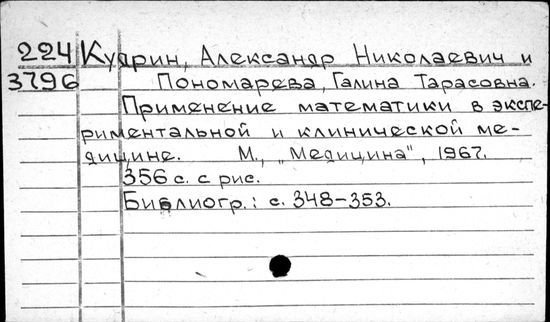 224 Кудрин, Александр Николаевич и
3796 Пономарева, Галина Тарасовна.
Применение математики в экспе-
риментальной и клинической ме-
дицине. М., „Медицина", 1967.
356 с. с рис.
Библиогр.: с. 348-353.